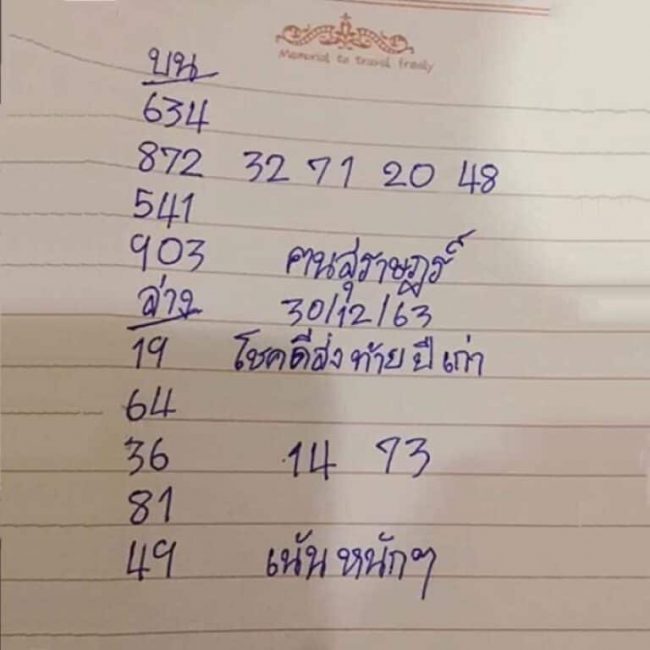 Memorial to travel freely
บน
634
872 32 71 20 48
541
903 ฅนสุราษฎร์
ล่าง 30/12/63
19 โชคดีส่งท้ายปีเก่า
64
36 14 73
81
49 เน้นหนักๆ